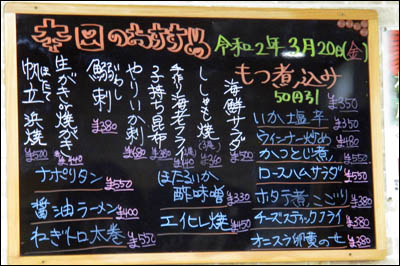 本日のおすすめ 令和2年3月20日(金)
もつ煮込み
50円引 ¥350
海鮮サラダ ¥500
ししゃも焼 (3尾) ¥340
手作り海老フライ (3尾) ¥380
子持ち昆布 ¥380
やりいか刺 ¥680
鰯刺 いわし ¥380
生がき・焼がき ¥440
帆立浜焼 ほたて ¥500
いか塩辛 ¥350
ウィンナー炒め ¥480
かつとじ煮 ¥550
ロースハムサラダ ¥550
ホタテ煮こごり ¥380
チーズスティックフライ ¥380
オニスラ卵黄のせ ¥380
ナポリタン ¥550
醤油ラーメン ¥400
ねぎトロ太巻 ¥550
ほたるいか
酢味噌 ¥330
エイヒレ焼 ¥450